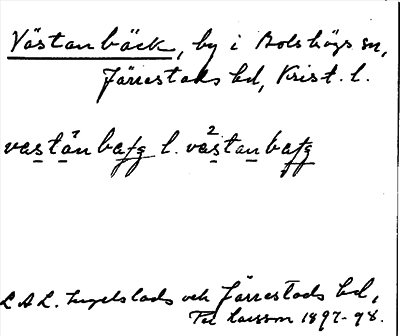 Västanbäck, by i Bolshögs sn,
Järrestads hd, Krist. l.
västánbafg l. 2västanbafg
LAL. Ingelstads och Järrestads hd,
Per Larsson 1897-98.